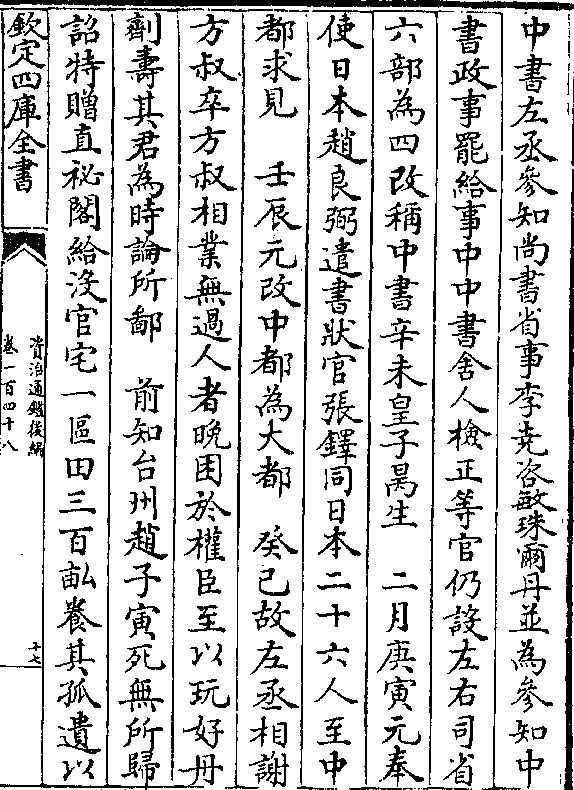 中書左丞參知尚書省事李堯咨敏珠爾丹並為參知中
書政事罷給事中中書舍人檢正等官仍設左右司省
六部為四改稱中書辛未皇子昺生　二月庚寅元奉
使日本趙良弼遣書狀官張鐸同日本二十六人至中
都求見　壬辰元改中都為大都　癸巳故左丞相謝
方叔卒方叔相業無過人者晚困於權臣至以玩好丹
劑壽其君為時論所鄙　前知台州趙子寅死無所歸
詔特贈直祕閣給沒官宅一區田三百畝養其孤遺以
欽定四庫全書
資治通鑑後編
卷一百四十八
十七